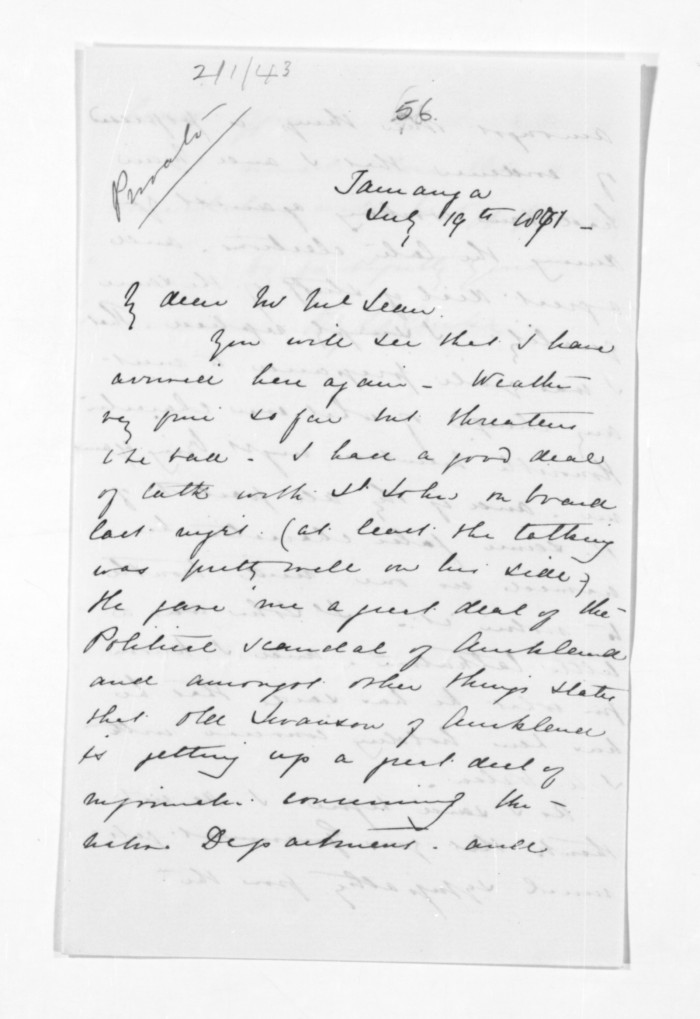 2/1/43
56.
Private
Tauranga
July 19th 1871 -
My dear Mr McLean.
You will see that I have
arrived here again - Weather
very fine so far but threatens
to be bad - I had a good deal
of talk with St John on board
last night. (at least the talking
was pretty well on his side)
He gave me a great deal of the
Political scandal of Auckland
and amongst other things states
that Old Swanson of Auckland
is getting up a great deal of
information concerning the
native Department. and